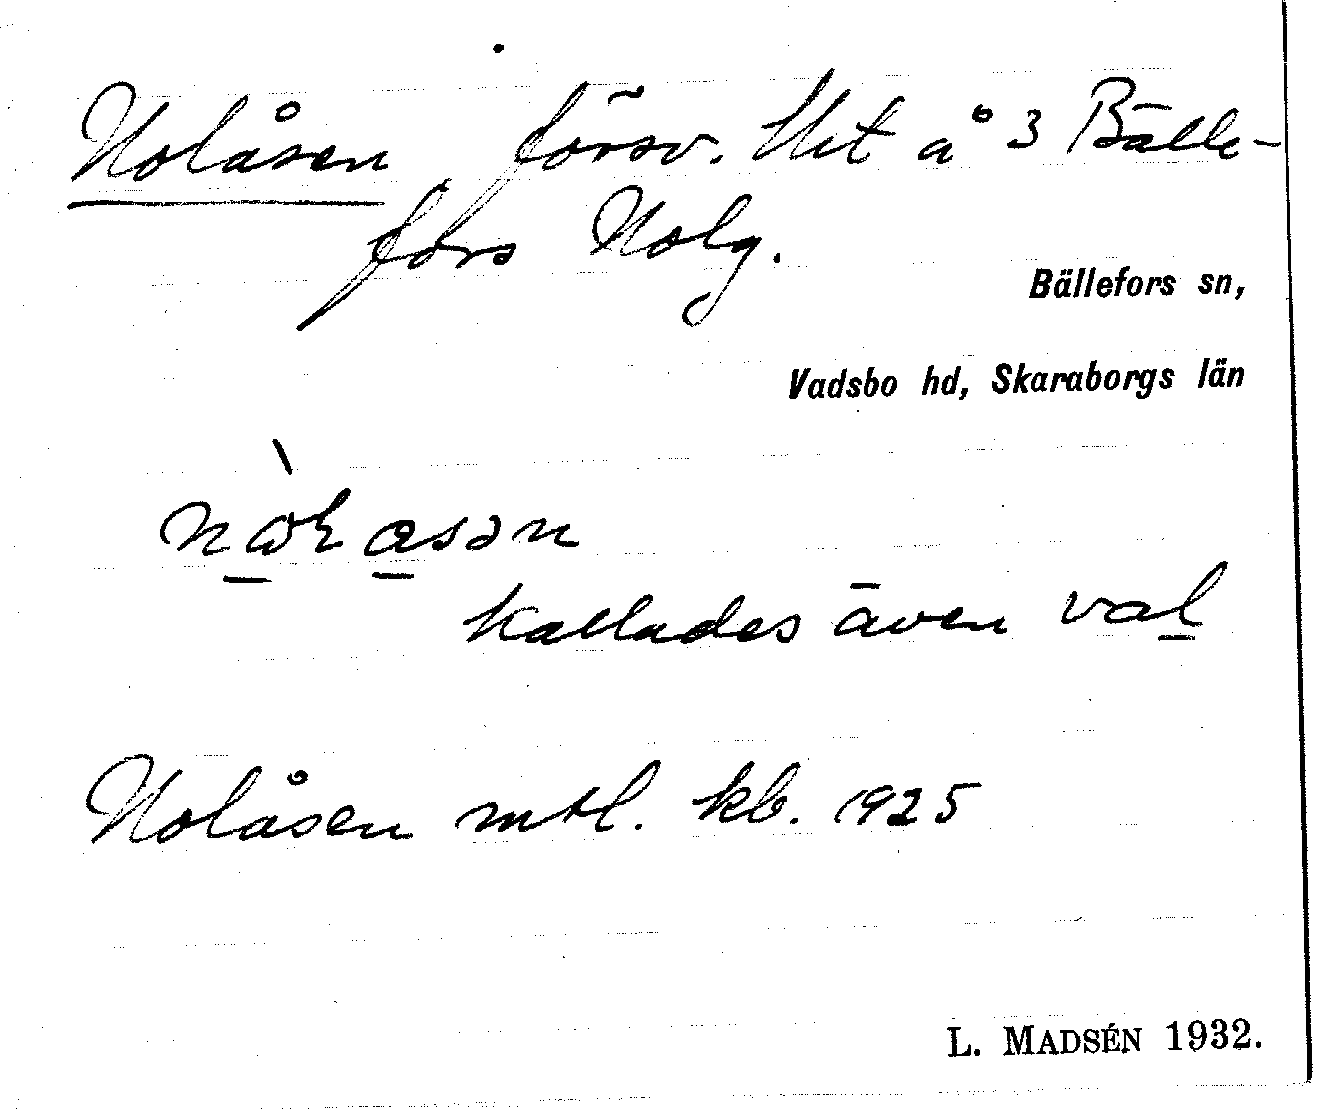 Nolåsen försv. lht å 3 Bälle-
fors Nolg.
Bällefors sn,
Vadsbo hd, Skaraborgs län
kallades även val
Nolåsen mtl. kb. 1925
L. MADSÉN 1932.